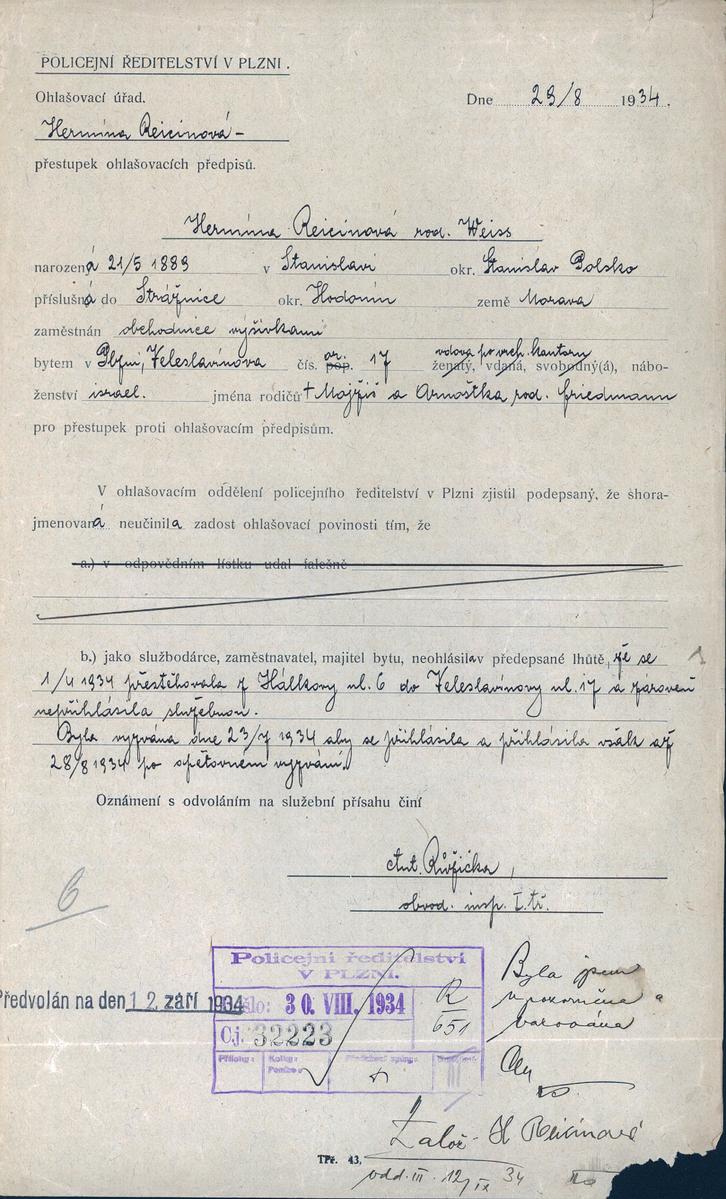 POLICEJNÍ ŘEDITELSTVÍ V PLZNI.
Ohlašovací úřad.
Dne 29/8 1934.
Hermína Reicinová -
přestupek ohlašovacích předpisů.
Hermína Reicinová rod. Weiss
narozená 21/5 1889 v Stanislavi okr. Stanislav Polsko
příslušná do Strážnice okr. Hodonín země Morava
zaměstnán obchodnice výšivkami
vdova po vrch. kantoru
bytem v Plzni, Veleslavínova čís. or. pop. 17 ženatý, vdaná, svobodný(á), nábo-
ženství israel. jména rodičů + Mojžíš a Arnoštka rod. Friedmann
pro přestupek proti ohlašovacím předpisům.
V ohlašovacím oddělení policejního ředitelství v Plzni zjistil podepsaný, že shora-
jmenovaná neučinila zadost ohlašovací povinosti tím, že
a.) v odpovědním lístku udal falešně
b.) jako službodárce, zaměstnavatel, majitel bytu, neohlásila v předepsané lhůtě, že se
1/4 1934 přestěhovala z Hálkovy ul. 6 do Veleslavínovy ul. 17 a zároveň
nepřihlásila služebnou.
Byla vyzvána dne 23/7 1934 aby se přihlásila a přihlásila však až
28/8 1934 po opětovném vyzvání.
Oznámení s odvoláním na služební přísahu činí
Ant. Růžička,
obvod. insp. I. tř.
6
Policejní ředitelství
V PLZNI.
Došlo: 30. VIII. 1934
Č.j. 32223
R
651
Přílohy:
Kolky:
Předvolán na den 12. září 1934
Byla jsem
upozorněna a
varována
Žalož. H Reicinová
odd. III. 12/IX 34
TPř. 43.